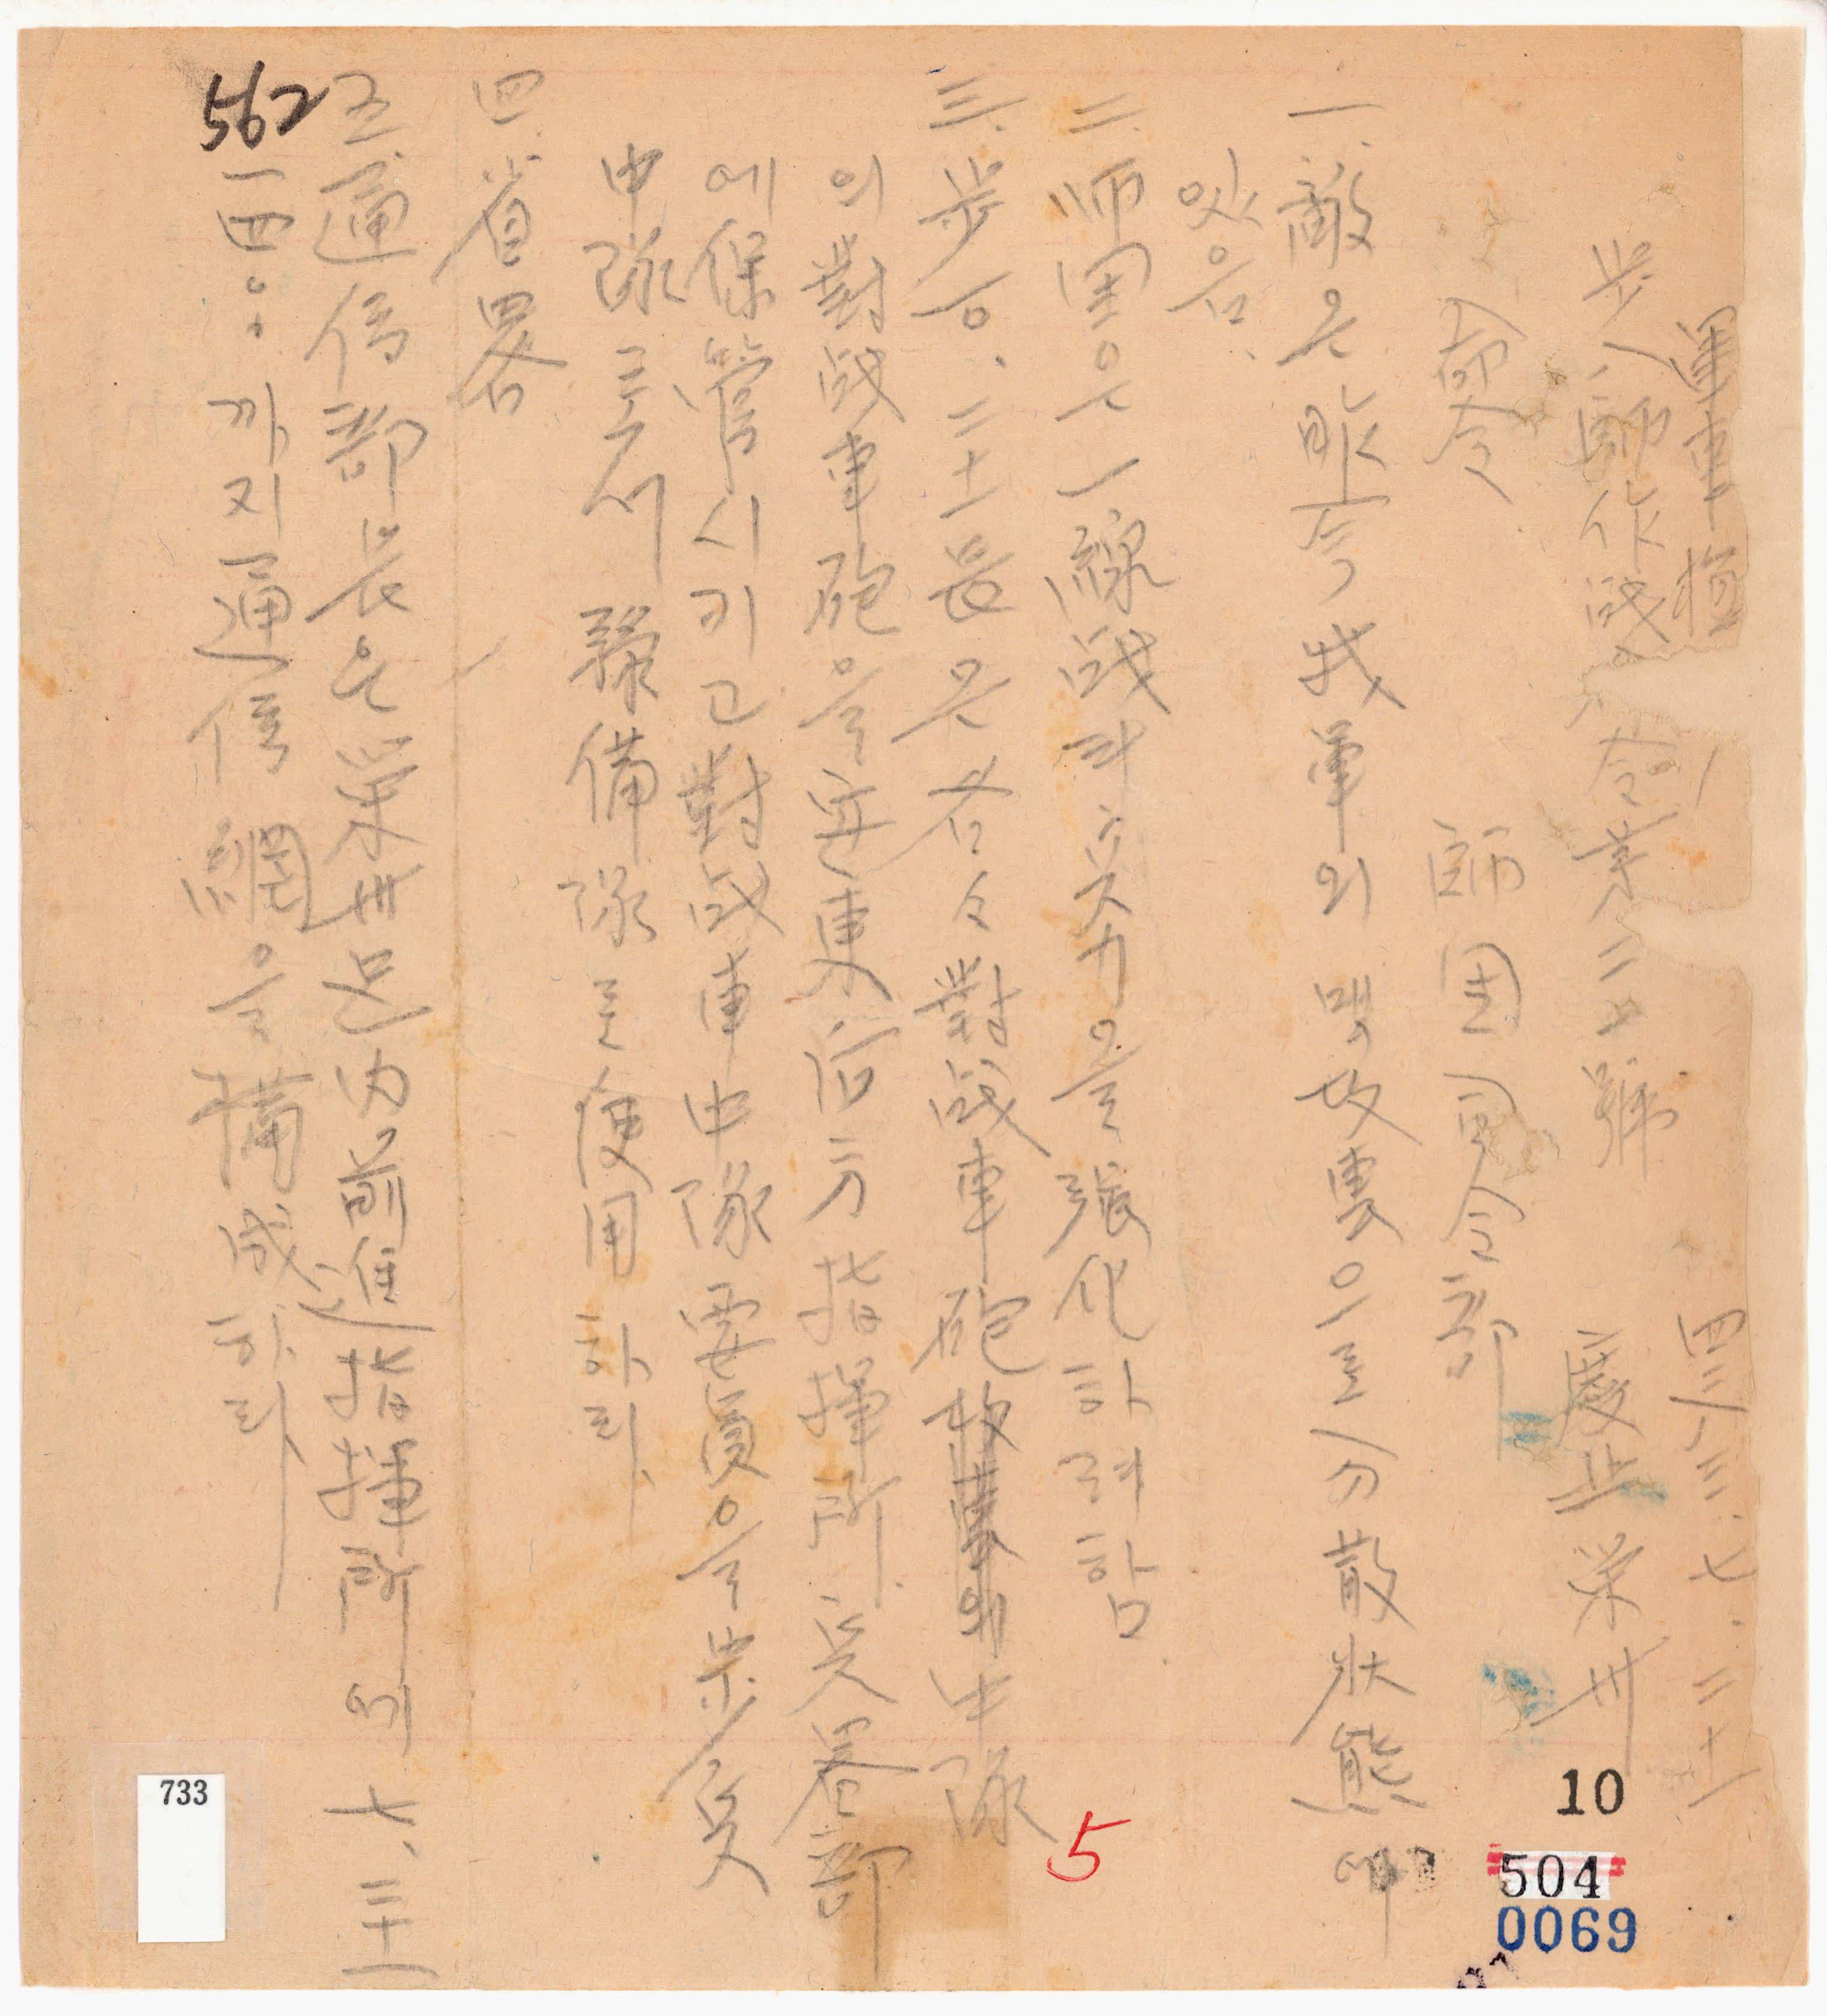 軍事極
四二八三.七.二十
步八師作戰命令第二二號
慶北榮州
命令
師團司令部
一. 敵은 昨今 我軍의 맹攻擊으로 分散狀態에
있음.
二. 師團은 一線戰鬪力을 强化하려함.
三. 步一〇. 二十一長은 各々 對戰車砲 中隊
의 對戰車砲을 安東后方指揮所 兵器部
에 保管시키고 對戰車中隊要員을 步兵
中隊로서 豫備隊로 使用하라.
四. 省畧
五. 通信部長은 榮州邑內 前進指揮所에 七.二十一
一四〇〇까지 通信網을 構成하라
562
5
10
504
0069
733